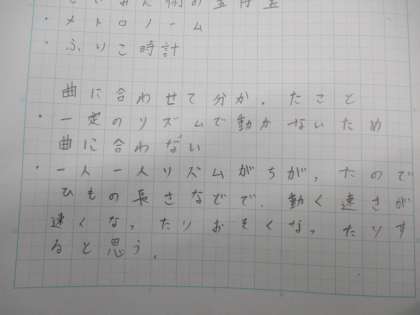 ・メトロノーム
・ふりこ時計
曲に合わせて分か、たこと
・一定のリズムで動かないため
曲に合わない
・一人一人リズムがちが、たので
ひもの長さなどで、動く速さが
速くな、たりおそくな、たりす
ると思う。